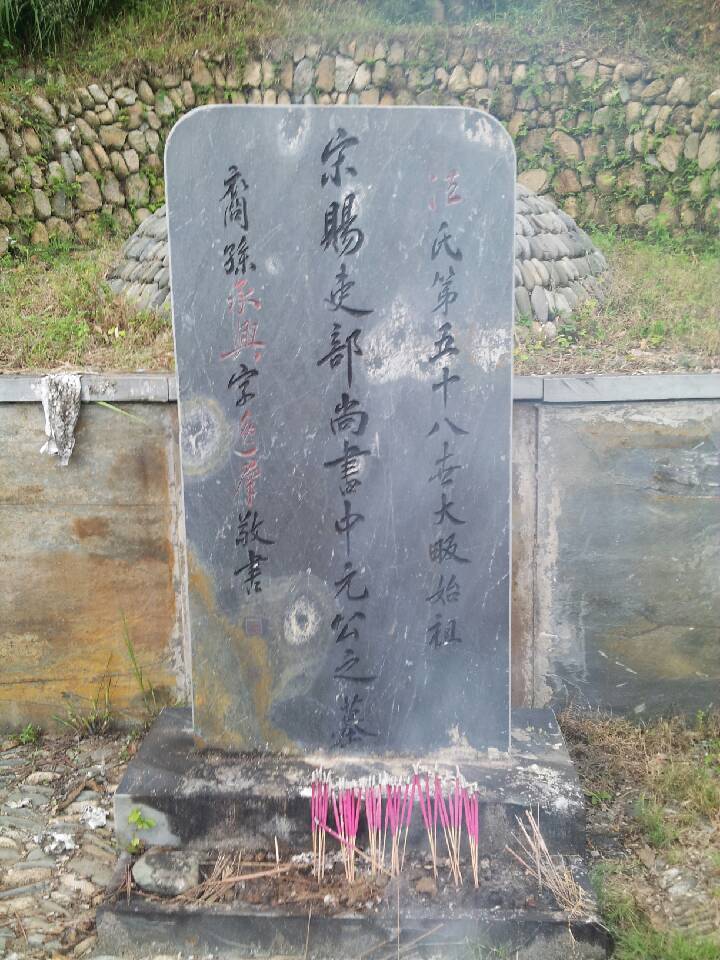 汪氏第五十八世大畈始祖
宋賜吏部尚書中元公之墓
裔孫承興字敬書